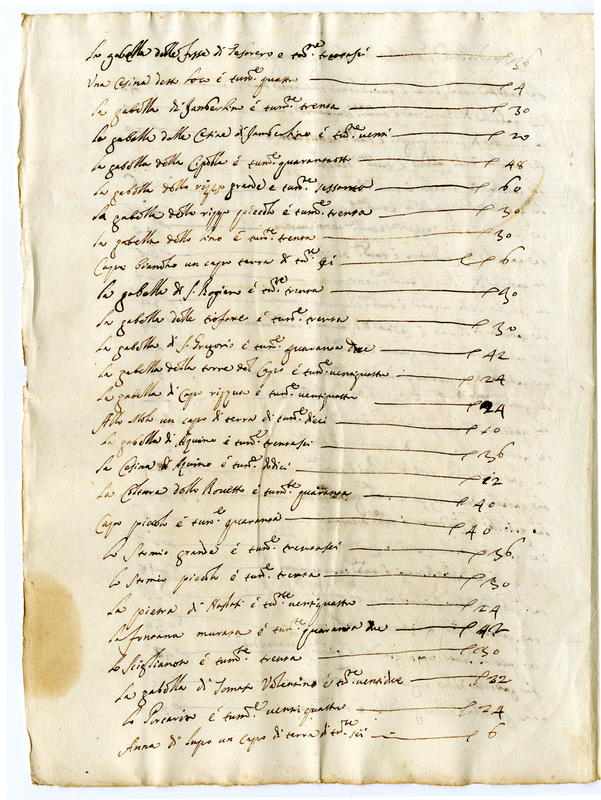 La gabella delle fosse di Tesorero e tum.te trentasei 36
Una Cesina dett. loco é tum.e quattro 4
La gabella di Jamberlino é tum.te trenta 30
La gabella della Cesina di Jamberlino é tum.e venti 20
La gabella della Cipolla é tum.e quarantotto 48
La gabella dello rizzo grande é tum.te sessanta 60
La gabella dello rizzo piccolo é tum.e trenta 30
La gabella dello lino é tum.te trenta 30
Capo biancho un capo terra di tum.te sei 6
La gabella di S. Rogiero é tum.te trenta 30
La gabella delle é tum.e trenta 30
La gabella di S. Gregorio é tum.e quaranta due 42
La gabella della torre del Capo é tum.e ventiquattro 24
La gabella di Capo rizzuto é tum.e ventiquattro 24
Allo un capo di terra di tum.e dieci 10
La gabella di Aquino é tum.e trentasei 36
La Cesina di Aquino é tum.e dodici 12
La Coltura dello Rovetto é tum.te quaranta 40
Capo piccolo é tum.e quaranta 40
Lo grande é tum.e trentasei 36
Lo piccolo é tum.e trenta 30
La pietra di é tum.te ventiquattro 24
La fontana murata é tum.te quaranta due 42
Lo Sciglianoto é tum.te trenta 30
La gabella di Tomaso Valentino é tum.te ventidue 22
Lo Porcarizo é tum.e ventiquattro 24
Anna di Lupo un Capo di terra di tum.te sei 6